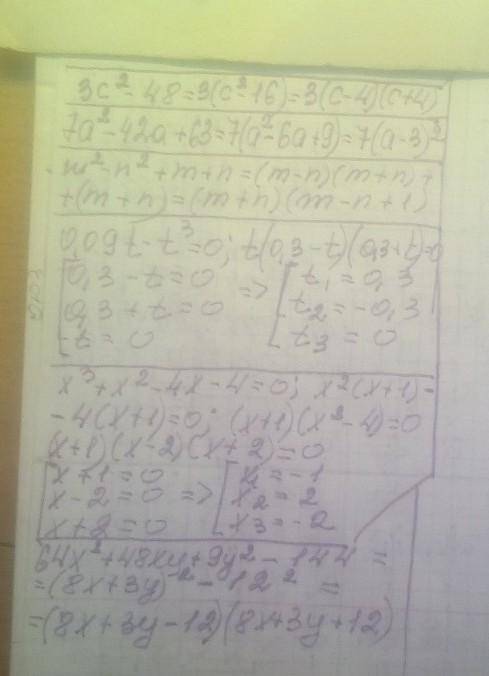 3c² - 48 = 3(c² - 16) = 3(c-4)(c+4)
7a² - 42a + 63 = 7(a² - 6a + 9) = 7(a-3)²
m² - n² + m + n = (m-n)(m+n) +
+ (m+n) = (m+n)(m-n+1)
0,09t - t³ = 0; t(0,3-t)(0,3+t)=0
[0,3 - t = 0 => [t₁ = 0,3
0,3 + t = 0 t₂ = -0,3
t = 0 t₃ = 0
x³ + x² - 4x - 4 = 0; x²(x+1) -
- 4(x+1) = 0; (x+1)(x² - 4) = 0
(x+1)(x-2)(x+2) = 0
[x + 1 = 0 [x₁ = -1
x - 2 = 0 => x₂ = 2
x + 2 = 0 x₃ = -2
64x² + 48xy + 9y² - 144 =
= (8x+3y)² - 12² =
= (8x+3y-12)(8x+3y+12)